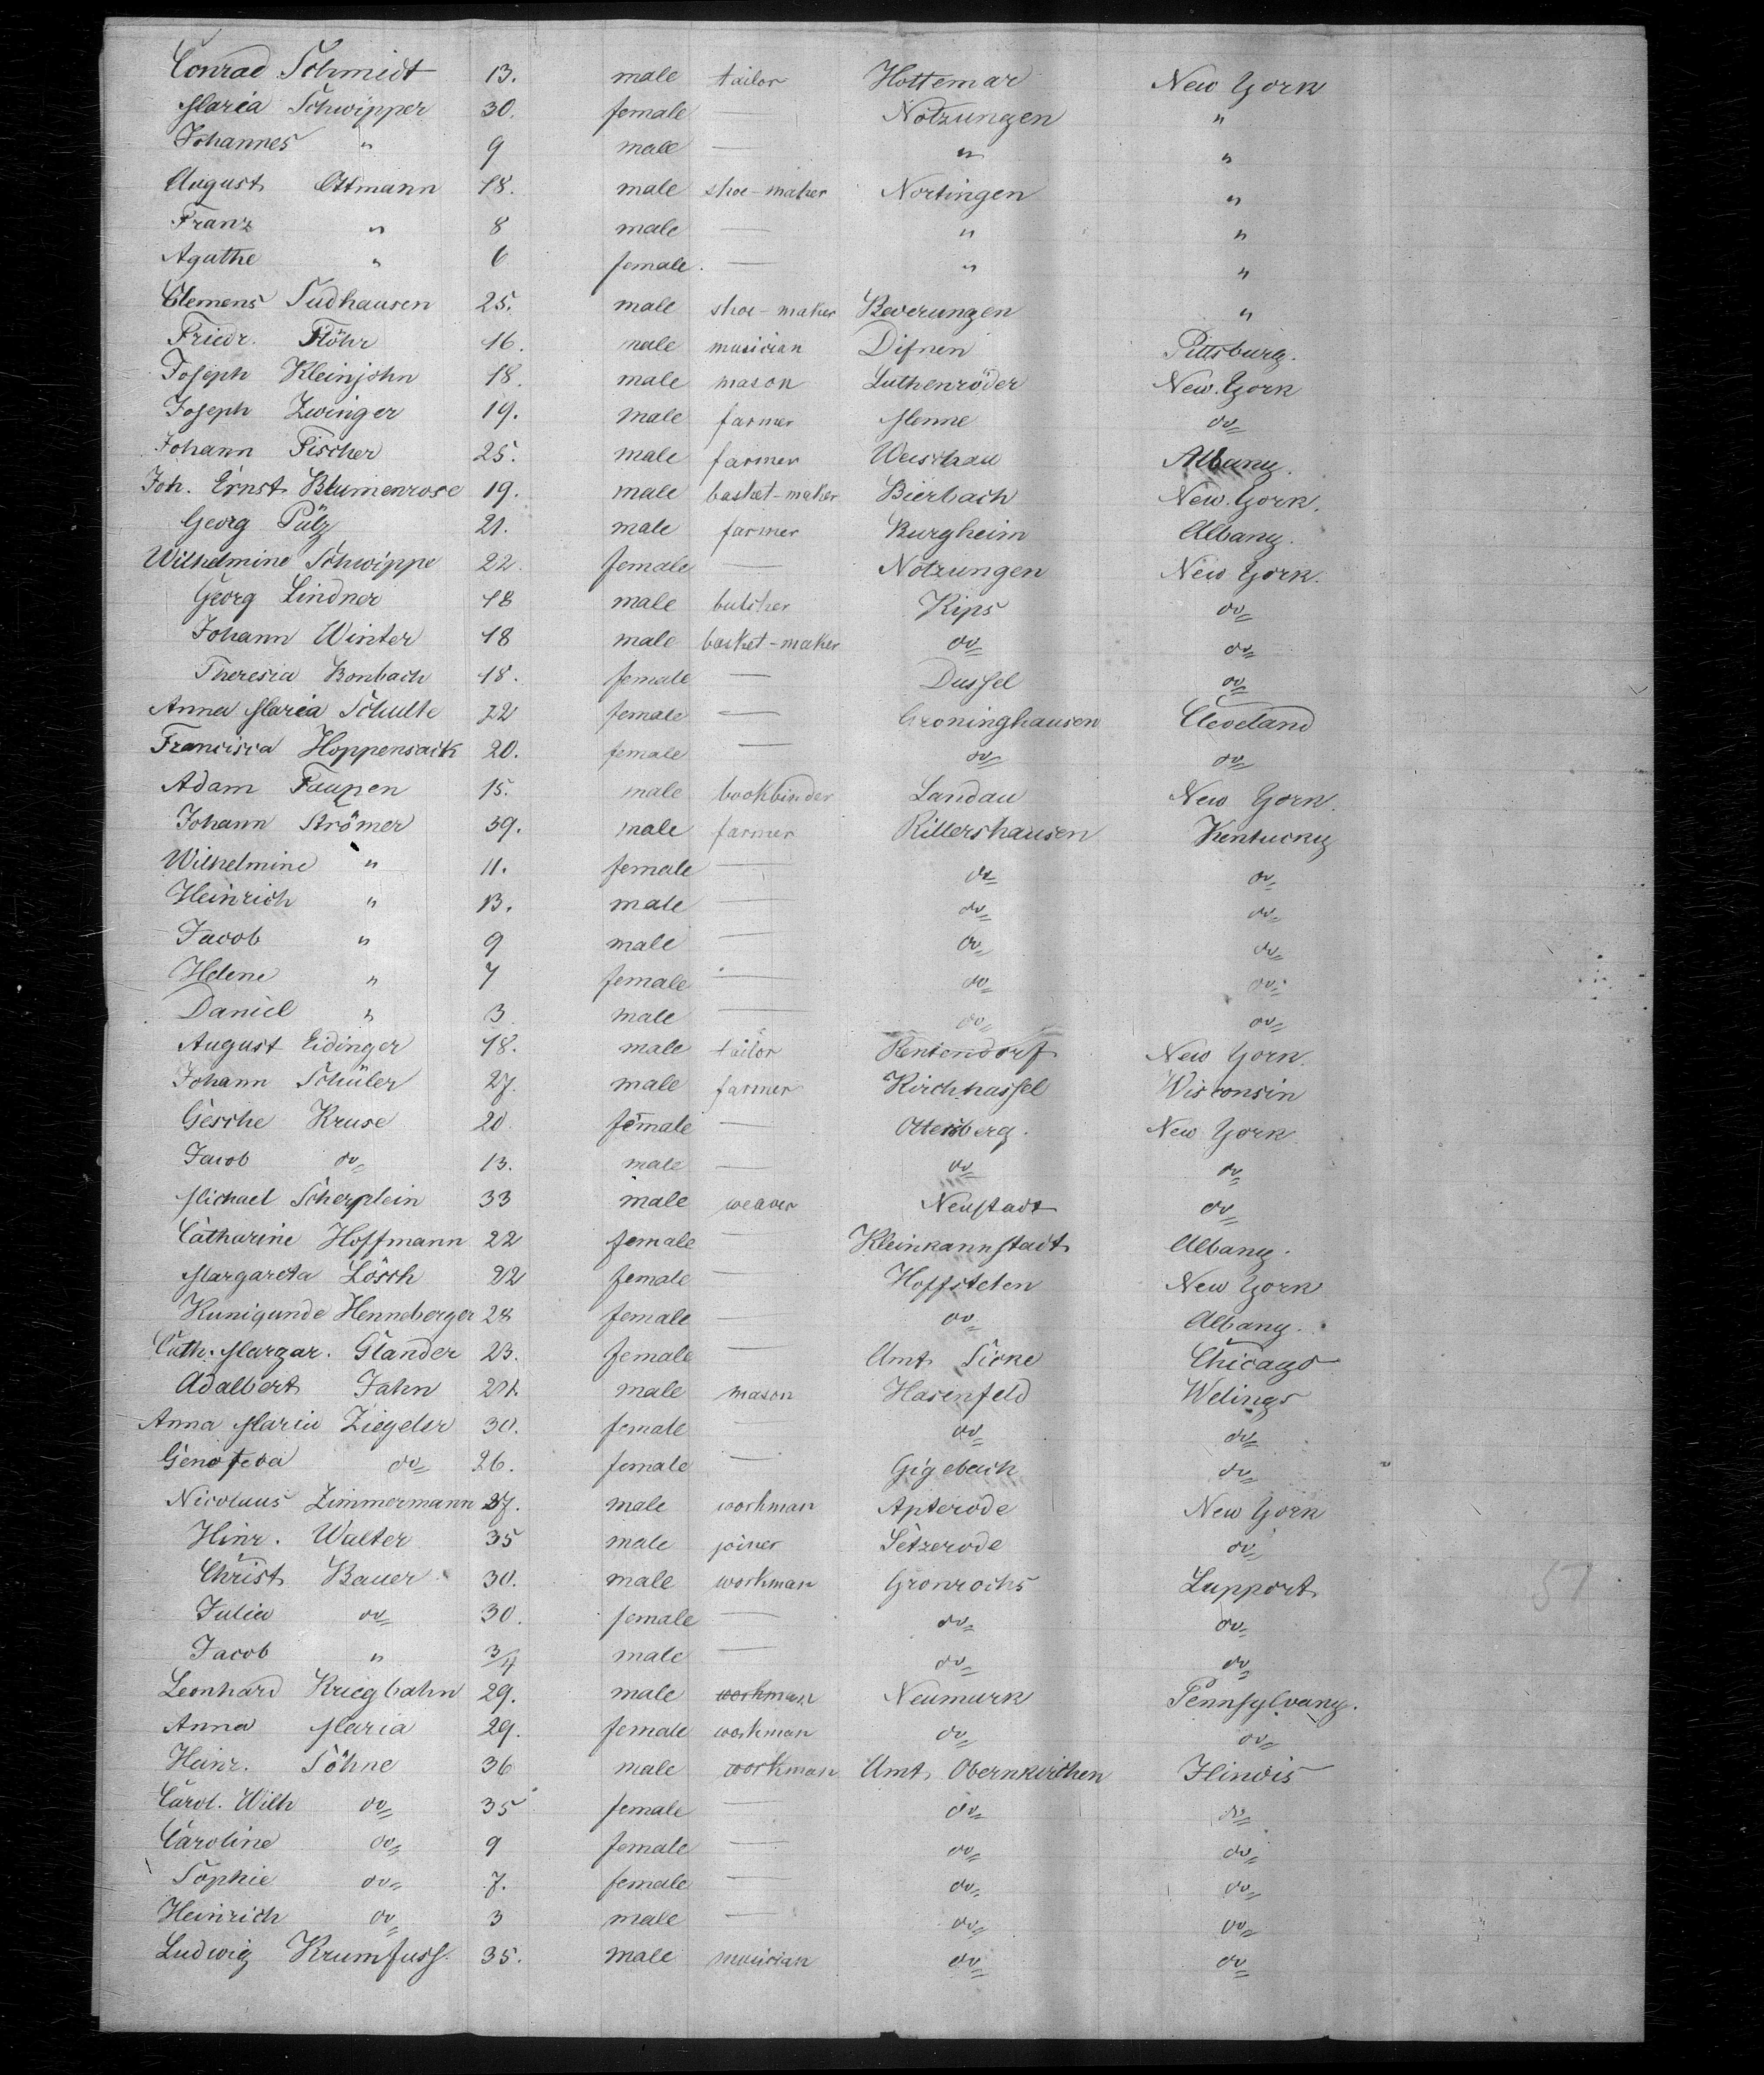 Conrad Schmidt 13. male tailor Hottemar New York
Maria Schwipper 30. female — Notzungen "
Johannes " 9 male — " "
August Ottmann 18. male shoe-maker Nortingen "
Franz " 8 male — " "
Agathe " 6 female. — " "
Clemens Sudhausen 25. male shoe-maker Beverungen "
Friedr. Flöhr 16. male musician Difnen Pittsburg.
Joseph Kleinjohn 18. male mason Luthenröder New York
Joseph Zwinger 19. male farmer Menne do
Johann Fischer 25. male farmer Weischau Albany.
Joh. Ernst Blumenrose 19. male basket-maker Bierbach New York.
Georg Pülz 21. male farmer Burgheim Albany.
Wilhelmine Schwippe 22. female — Notzungen New York.
Georg Lindner 18 male butcher Kips do
Johann Winter 18 male basket-maker do do
Theresia Bonbach 18. female — Dussel do
Anna Maria Schulte 22 female — Groninghausen Cleveland
Francisca Hoppensack 20. female — do do
Adam Faupen 15. male bookbinder Landau New York.
Johann Strömer 39. male farmer Rittershausen Kentucky
Wilhelmine " 11. female — do do
Heinrich " 13. male — do do
Jacob " 9 male — do do
Helene " 7 female — do do
Daniel " 3 male — do do
August Eidinger 18. male tailor Rentendorf New York.
Johann Schüler 27. male farmer Kirchhassel Wisconsin
Gesche Kruse 20 female — Ottersberg. New York
Jacob do 13. male — do do
Michael Scherplein 33 male weaver Neustadt do
Catharine Hoffmann 22 female — Kleinkannstadt Albany.
Margareta Lösch 22 female — Hoffsteten New York
Kunigunde Henneberger 28 female — do Albany.
Cath. Margar. Glander 23. female — Amt Sicke Chicago
Adalbert Jahn 24. male mason Hasenfeld Welings
Anna Maria Ziegeler 30. female — do do
Genofeva do 26. female — Gigebach do
Nicolaus Zimmermann 27. male workman Apterode New York
Hinr. Walter 35 male joiner Setzerode do
Christ Bauer 30. male workman Gronrochs Lupport
Julia do 30. female — do do
Jacob " 3/4 male — do do
Leonhard Kriegbahn 29. male workman Neumark Pennsylvany.
Anna Maria 29. female workman do do
Heinr. Söhne 36 male workman Amt Obernkirchen Ilinois
Carol. Wilh do 35 female — do do
Caroline do 9 female — do do
Sophie do 7. female — do do
Heinrich do 3 male — do do
Ludwig Krumfuss. 35. male musician do do
57